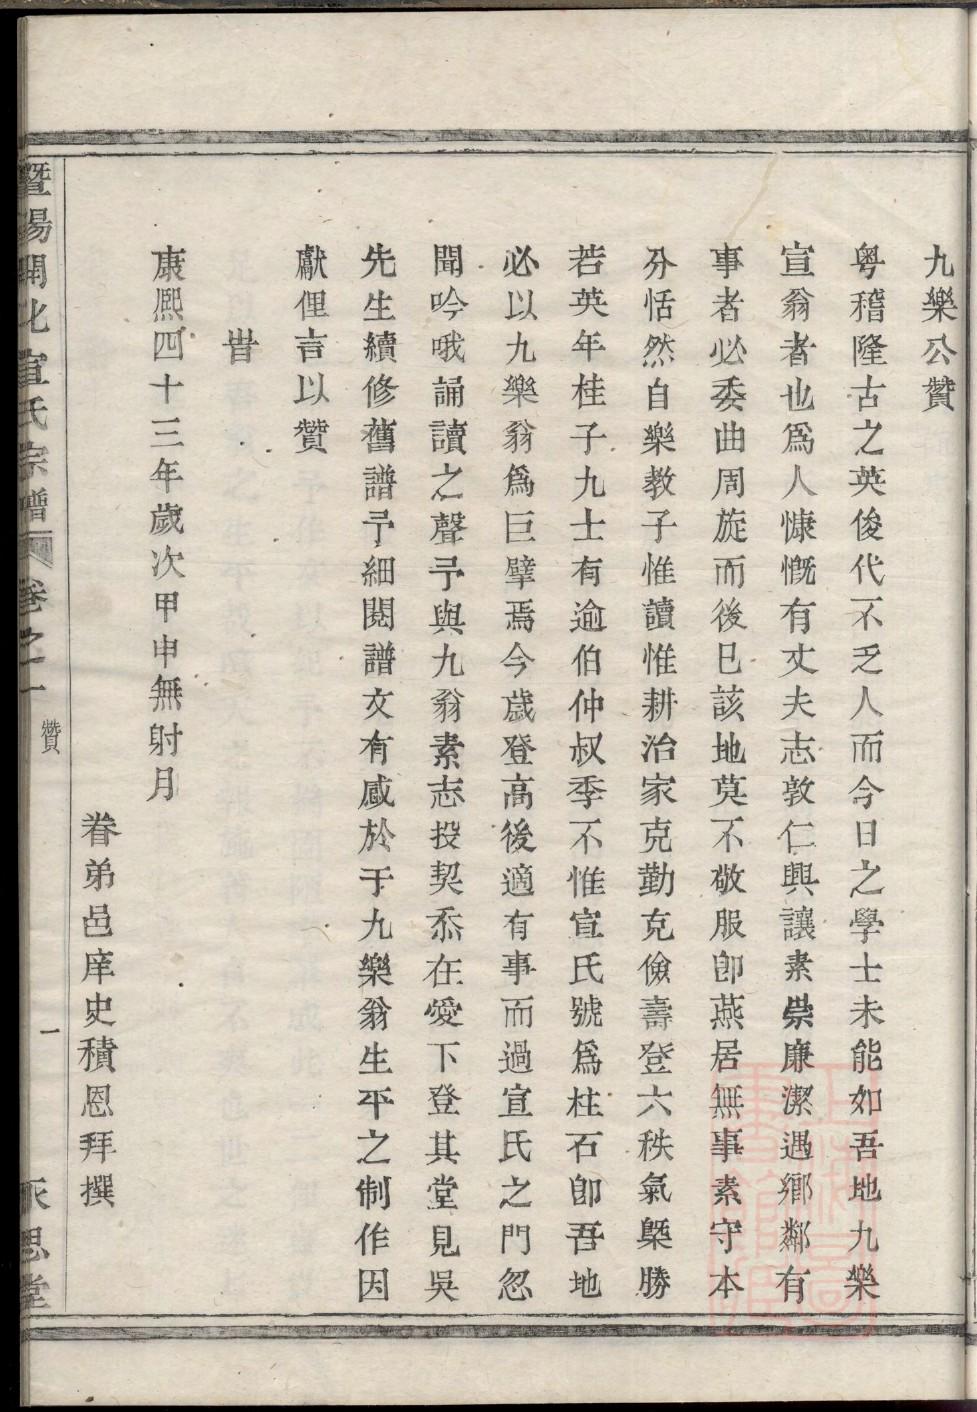 九樂公贊
粤稽隆古之英俊代不乏人而今日之學士未能如吾地九樂
宣翁者也爲人慷慨有丈夫志敦仁興讓素崇廉潔遇鄉鄰有
事者必委曲周旋而後已該地莫不敬服卽燕居無事素守本
分恬然自樂教子惟讀惟耕治家克勤克儉壽登六秩氣槩勝
若英年桂子九士有逾伯仲叔季不惟宣氏號爲柱石卽吾地
必以九樂翁爲巨擘焉今歲登高後適有事而過宣氏之門忽
聞吟哦誦讀之聲予與九翁素志投契忝在愛下登其堂見吳
先生續修舊譜予細閱譜文有感於于九樂翁生平之制作因
獻俚言以贊
旹
康熙四十三年歲次甲申無射月
眷弟邑庠史積恩拜撰
暨陽開化宣氏宗譜 卷之一 贊 一 永思堂